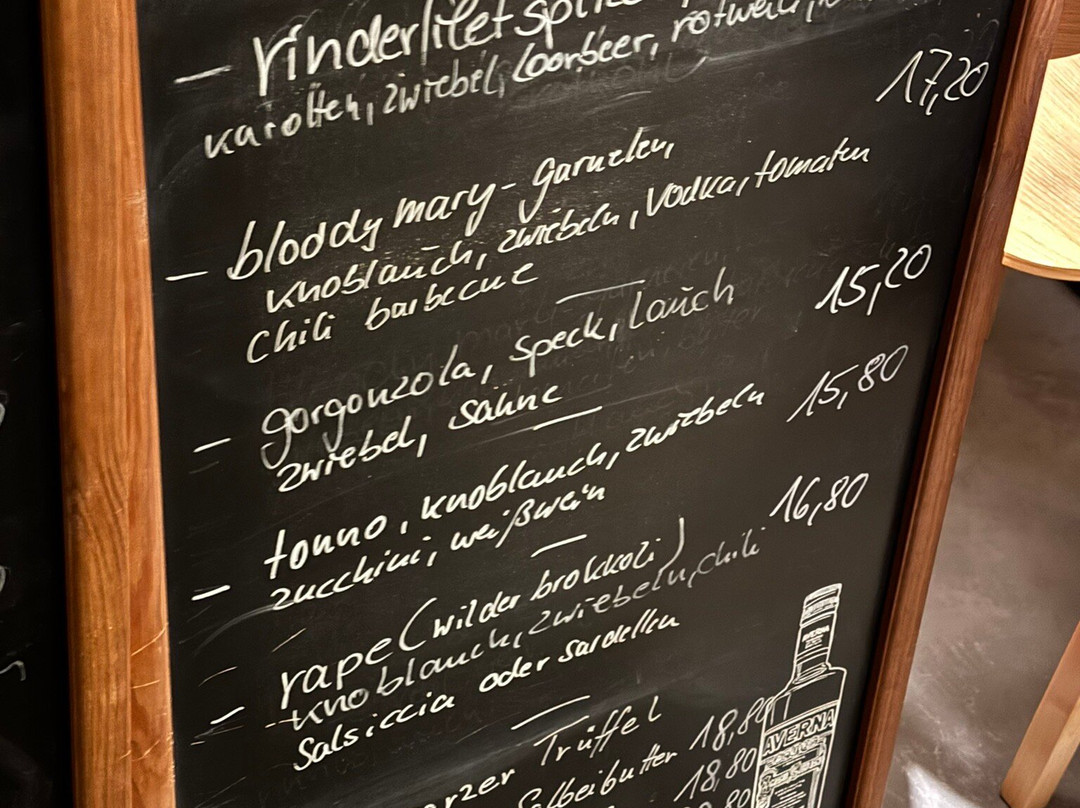 - rinderfiletspitzen
karotten, zwiebel, loorbeer, rotwein,
17,20
- bloddy mary - garnelen,
knoblauch, zwiebeln, vodka, tomaten
chili barbecue
15,20
- gorgonzola, speck, lauch
zwiebel, sahne
15,80
- tonno, knoblauch, zwiebeln
zucchini, weißwein
16,80
- rape (wilder brokkoli)
knoblauch, zwiebeln, chili
Salsiccia oder sardellen
Trüffel 18,80
Salbeibutter 18,80
AVERNA
AVERNA